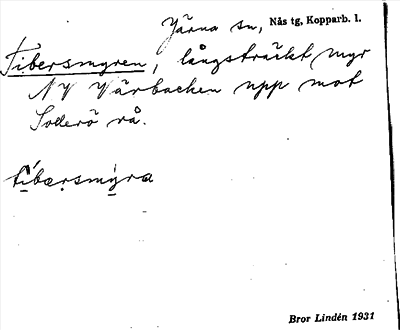 Järna sn, Nås tg, Kopparb. l.
Tibersmyren, långsträckt myr
NV Värbacken upp mot
Sollerö rå.
tíbærsmýra
Bror Lindén 1931